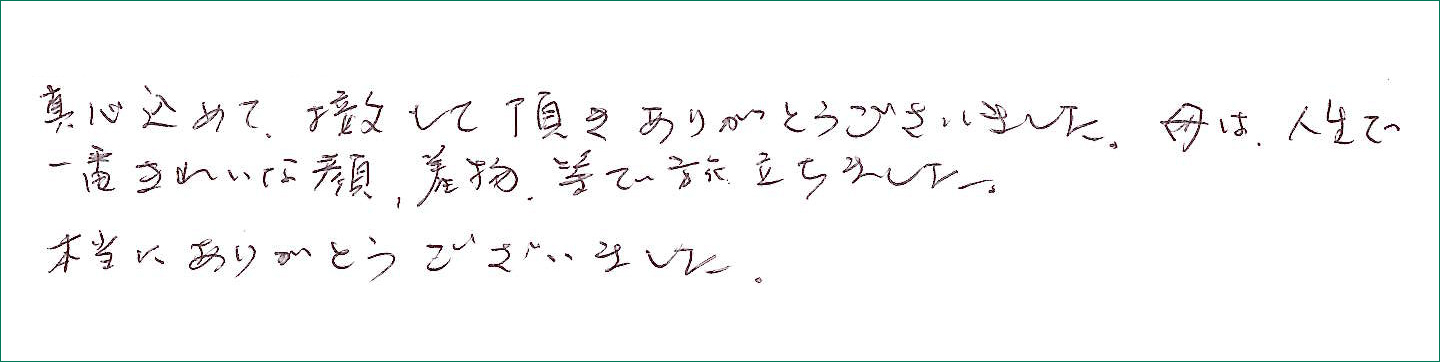 真心込めて、接して頂きありがとうございました。母は、人生で
一番きれいな顔、着物、等で旅立ちました。
本当にありがとうございました。